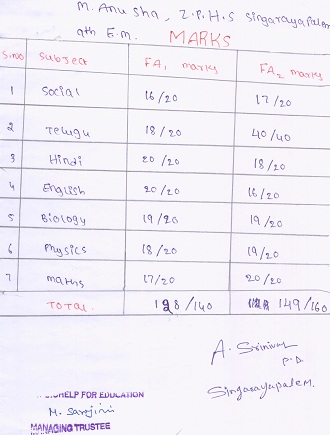 M. Anusha, Z.P.H.S Singarayapalem
9th E.M. MARKS
S.no Subject FA1 marks FA2 marks
1 Social 16/20 17/20
2 Telugu 18/20 40/40
3 Hindi 20/20 18/20
4 English 20/20 16/20
5 Biology 19/20 19/20
6 Physics 18/20 19/20
7 maths 17/20 20/20
TOTAL. 128/140 149/160
A. Srinivas
P.D.
Singarayapalem.
HELP FOR EDUCATION
M. Sarojini
MANAGING TRUSTEE